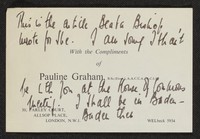 This is the article Beata Bishop
wrote for She. I am sorry I shan't
With the Compliments
of
Pauline Graham,
be
you at the House of Commons
I shall be in Baden-
Baden then
56, FARLEY COURT,
ALLSOP PLACE,
LONDON, N.W.1
WELbeck 1934